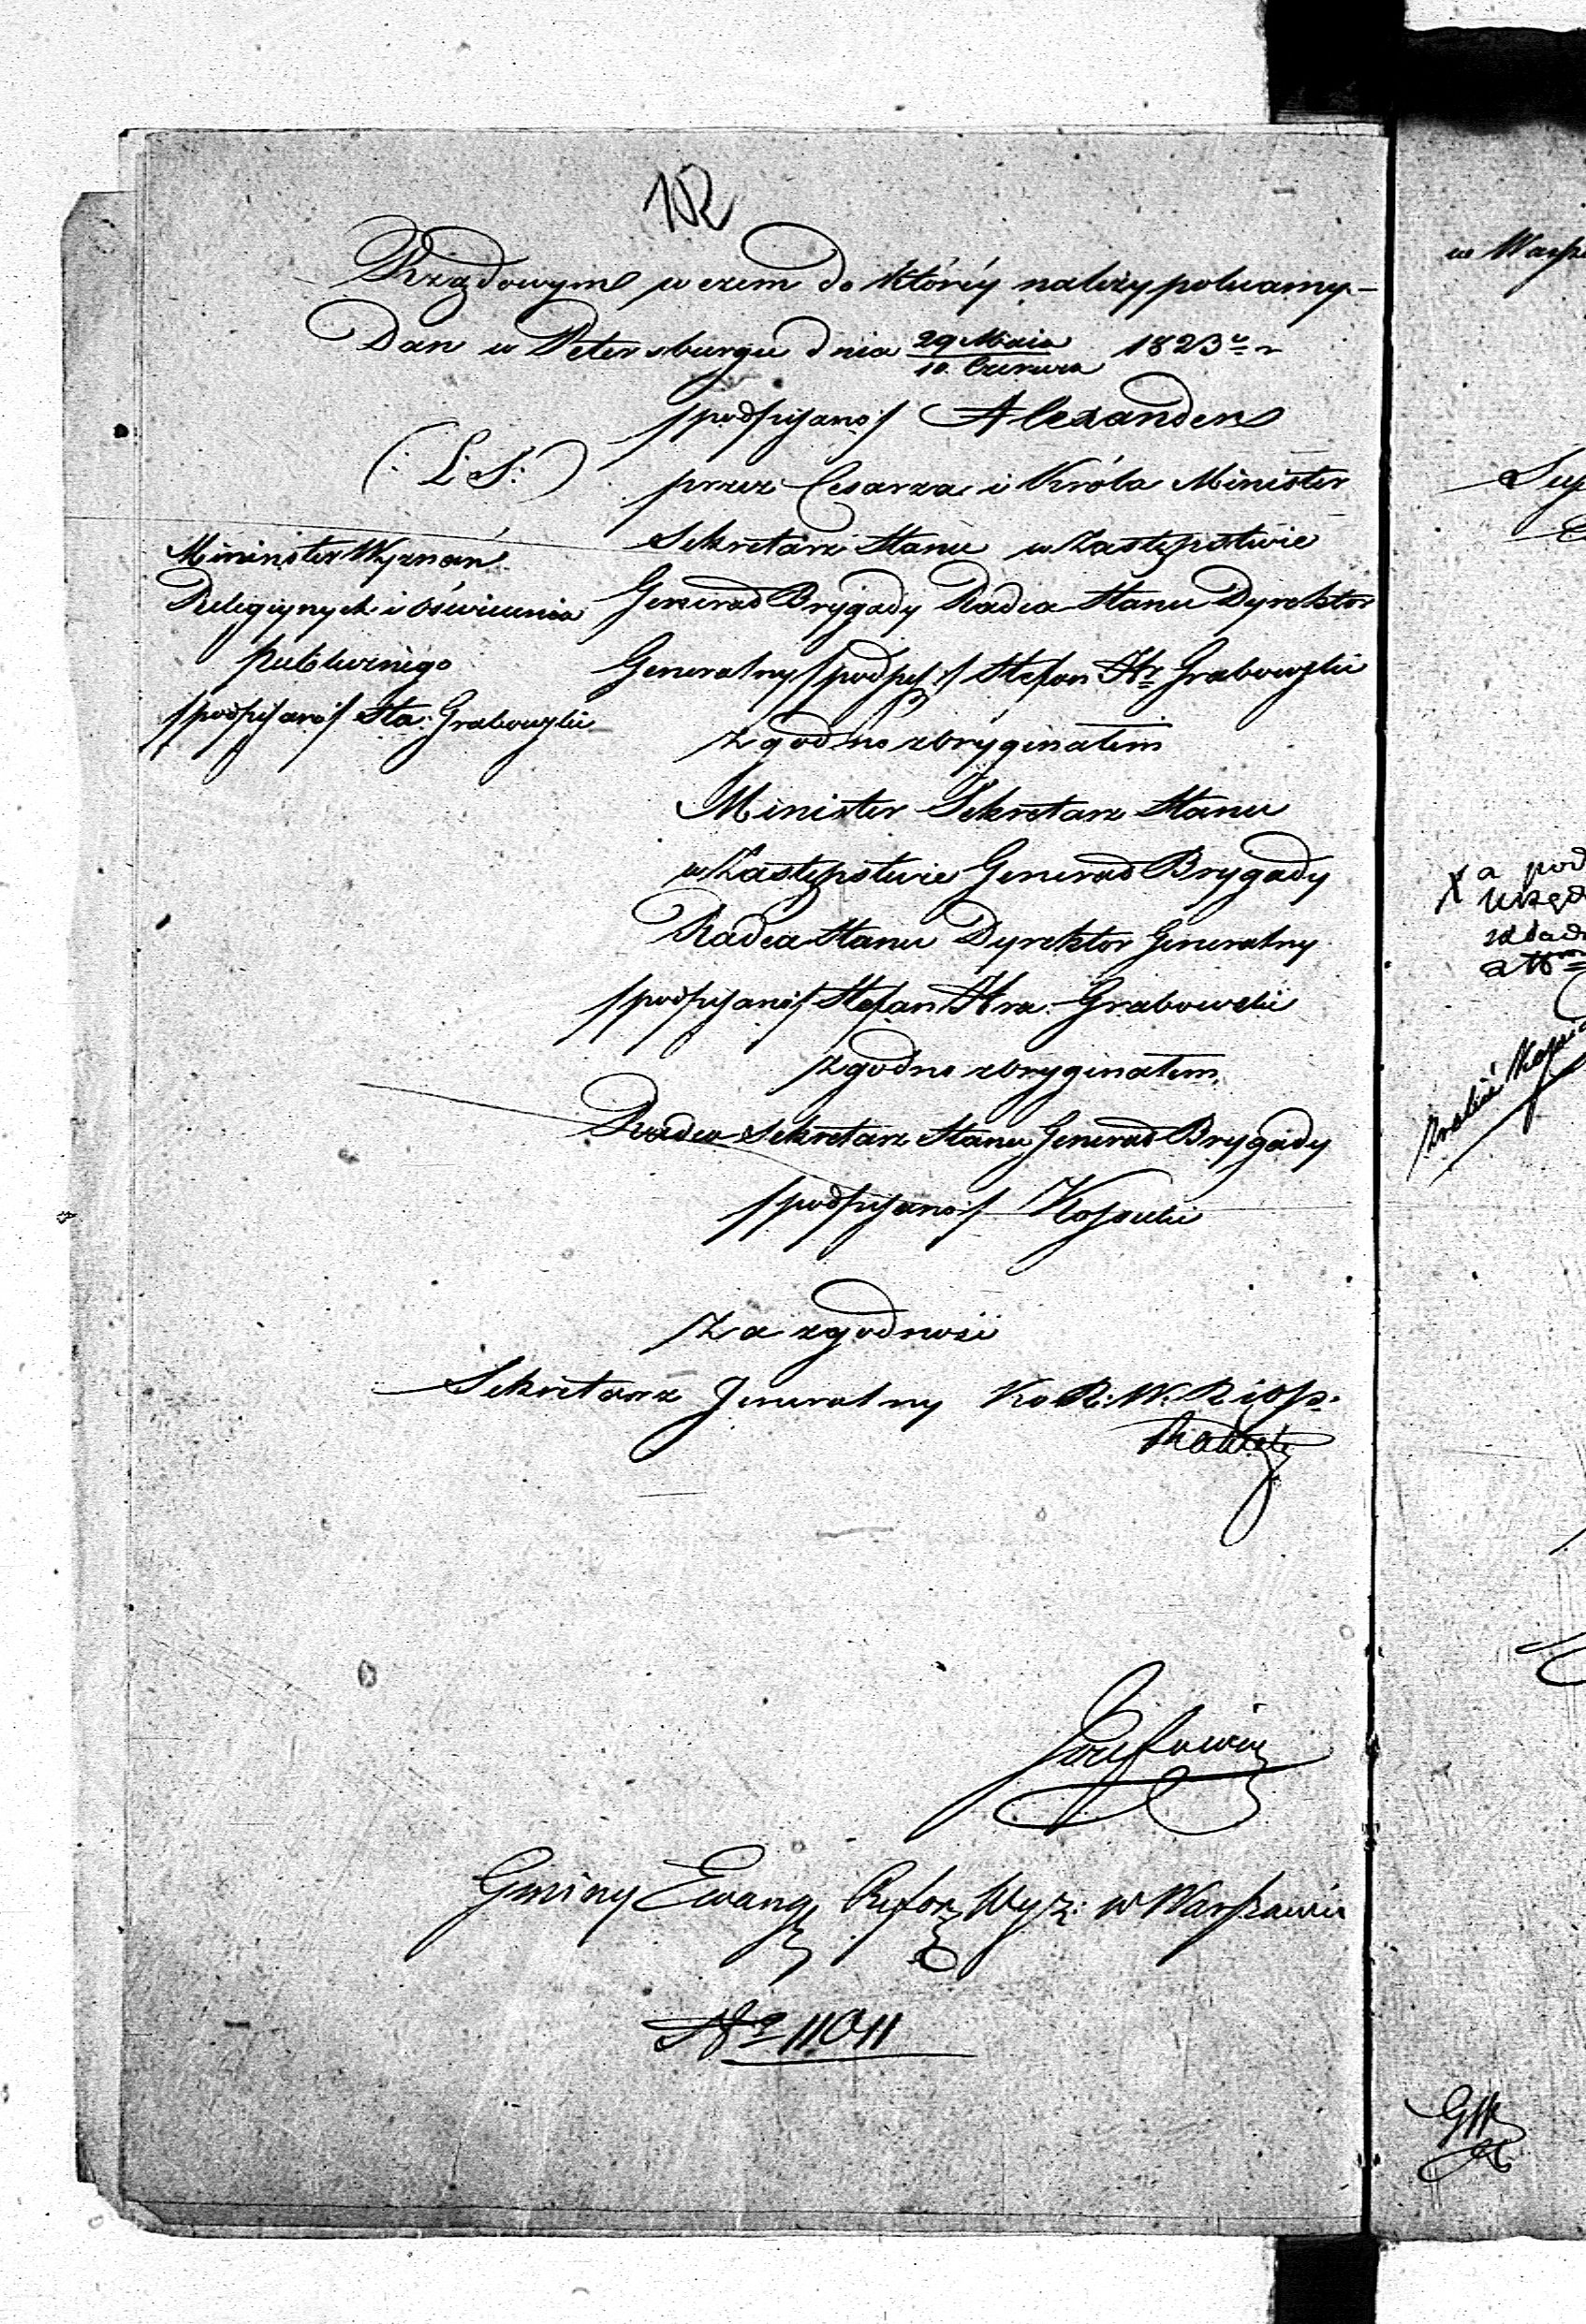 102
Rządowym w czem do któréy należy polecamy -
Dan w Petersburgu dnia 29 Maia / 10. Czerwca 1823 r
/podpisano/ Alexander
(: L. S. :)
przez Cesarza i Króla Minister
Sekretarz Stanu w Zastępstwie
Generał Brygady Radca Stanu Dyrektor
Generalny /podpis:/ Stefan Hr. Grabowski
Mininster Wyznań
Religiynych i Oświecenia
publicznego
/podpisano/ Sta: Grabowski
zgodno z oryginałem
Minister Sekretarz Stanu
w Zastępstwie Generał Brygady
Radca Stanu Dyrektor Generalny
/podpisano/ Stefan Hra: Grabowski
zgodno z oryginałem
Radca Sekretarz Stanu Generał Brygady
/podpisano/ Kossecki
Za zgodność
Sekretarz Jeneralny Ko R: W. R i O p:
Gminy Ewang Refor Wyz: w Warszawie
No 11011
w Warsz
X a pod